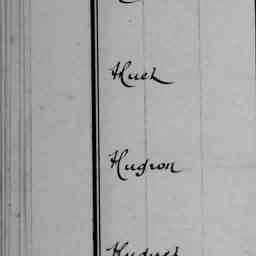 Huel
Hugron